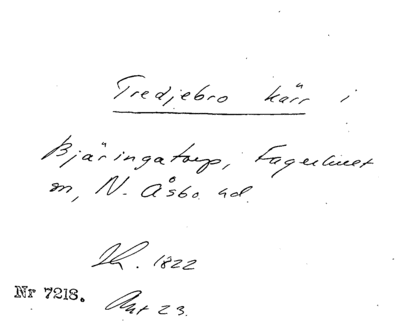 Tredjebro kärr i
Bjäringatorp, Fagerhult
sn, N. Åsbo hd.
Sk. 1822
Nr 7218. Akt 23.